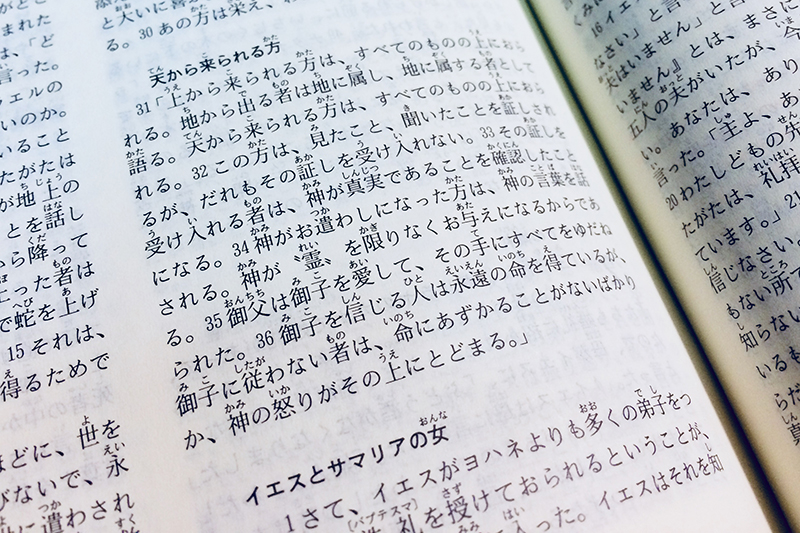 がどこ
は、「ど
言った。
フェルの
いのか。
いること
たがたは
が地上の
ことを話し
から降って
上った者は
で蛇を上げ
15 それは、
得るためで
ほどに、世を
びないで、永
遣わされ
と大いに喜
る。30 あの方は栄え、
天から来られる方
31「上から来られる方は、すべてのものの上におら
れる。地から出る者は地に属し、地に属する者として
語る。天から来られる方は、すべてのものの上におら
れる。32 この方は、見たこと、聞いたことを証しされ
るが、だれもその証しを受け入れない。33 その証しを
受け入れる者は、神が真実であることを確認したこと
になる。34 神がお遣わしになった方は、神の言葉を話
される。神が〝霊〟を限りなくお与えになるからであ
る。35 御父は御子を愛して、その手にすべてをゆだね
られた。36 御子を信じる人は永遠の命を得ているが、
御子に従わない者は、命にあずかることがないばかり
か、神の怒りがその上にとどまる。」
イエスとサマリアの女
1 さて、イエスがヨハネよりも多くの弟子をつ
礼を授けておられるということが、
入った。イエスはそれを知
16 イエ
なさい」と言
夫はいません」と言
いません』とは、まさに
五人の夫がいたが、今
い。あなたは、あり
言った。「主よ、あ
20 わたしどもの先
たがたは、礼拝
ています。」21
信じなさい。
もない所で
知らない
いるも
らだ
真